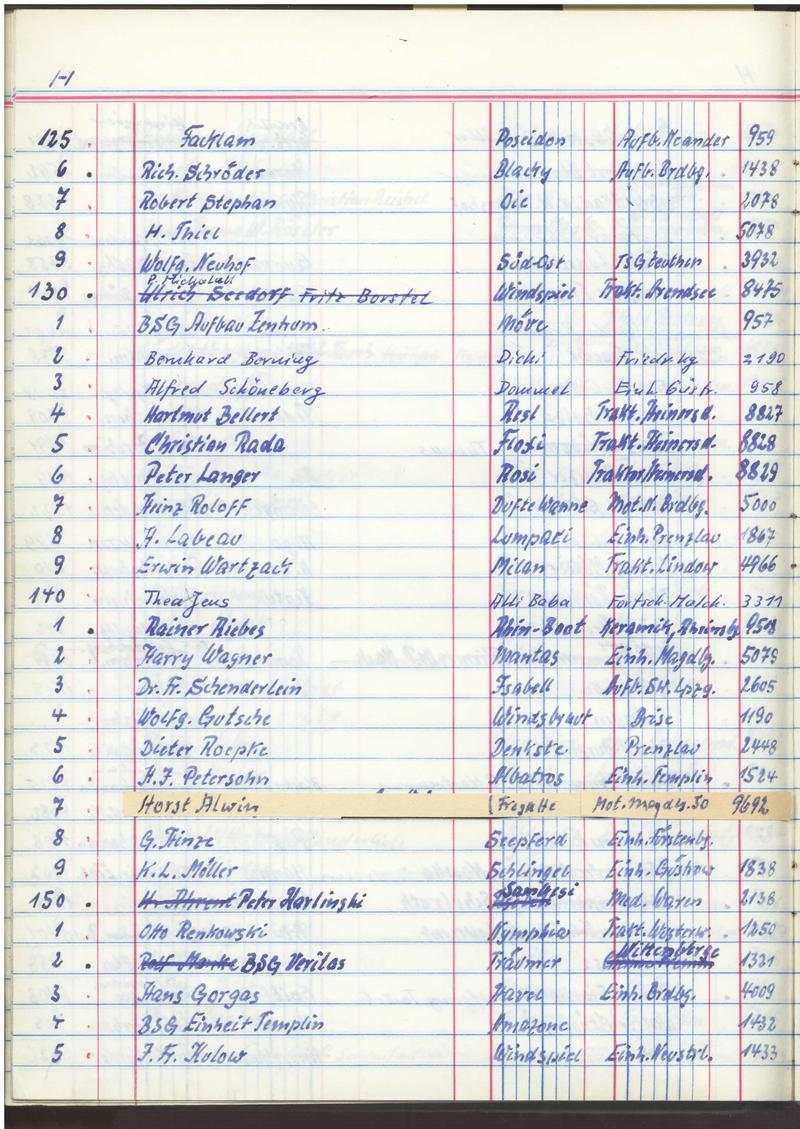 H
125 Facklam Poseidon Aufb. Neander 959
6 Rich. Schröder Blacky Aufb. Brdbg. 1438
7 Robert Stephan Oie 2078
8 H. Thiel 5078
9 Wolfg. Neuhof Süd-Ost TSG Zeuthen 3932
P. Michalall
130 Ulrich Seedorf Fritz Borstel Windspiel Trakt. Arendsee 8475
1 BSG Aufbau Zentrum. Möve 957
2 Bernhard Berning Dicki Friedr.hg 2190
3 Alfred Schöneberg Dommel Einh. Güstr. 958
4 Hartmut Bellert Resl Trakt. Heinersd. 8827
5 Christian Rada Flosi Trakt. Heinersd. 8828
6 Peter Langer Rosi Traktor Heinersd. 8829
7 Heinz Roloff Dufte Wanne Mot. N. Brdbg. 5000
8 A. Labeau Lumpaci Einh. Prenzlau 1867
9 Erwin Wartzack Milan Trakt. Lindow 4966
140 Thea Jens Alli Baba Fortsch. Malch. 3311
1 Rainer Riebes Rhin-Boot Keramik, Rheinsbg 9508
2 Harry Wagner Mantas Einh. Magdbg. 5079
3 Dr. Fr. Schenderlein Isabell Aufb. SW. Lpzg. 2605
4 Wolfg. Gutsche Windsbraut Brise 1190
5 Dieter Roepke Denkste Prenzlau 2448
6 H.J. Petersohn Albatros Einh. Templin 1524
7 Horst Alwin Fregatte Mot. Magdbg. SO 9692
8 G. Hinze Seepferd Einh. Fürstenbg.
9 K.L. Möller Schlingel Einh. Güstrow 1838
150 H. Ahrent Peter Harlinski Samkesi Med. Waren 2138
1 Otto Renkowski Nymphia Trakt. Westerw. 1250
2 Rolf Manke BSG Veritas Träumer Wittenberge 1321
3 Hans Gorgas Havel Einh. Brdbg. 4009
4 BSG Einheit Templin Amazone 1432
5 J. Fr. Kulow Windspiel Einh. Neustrl. 1433